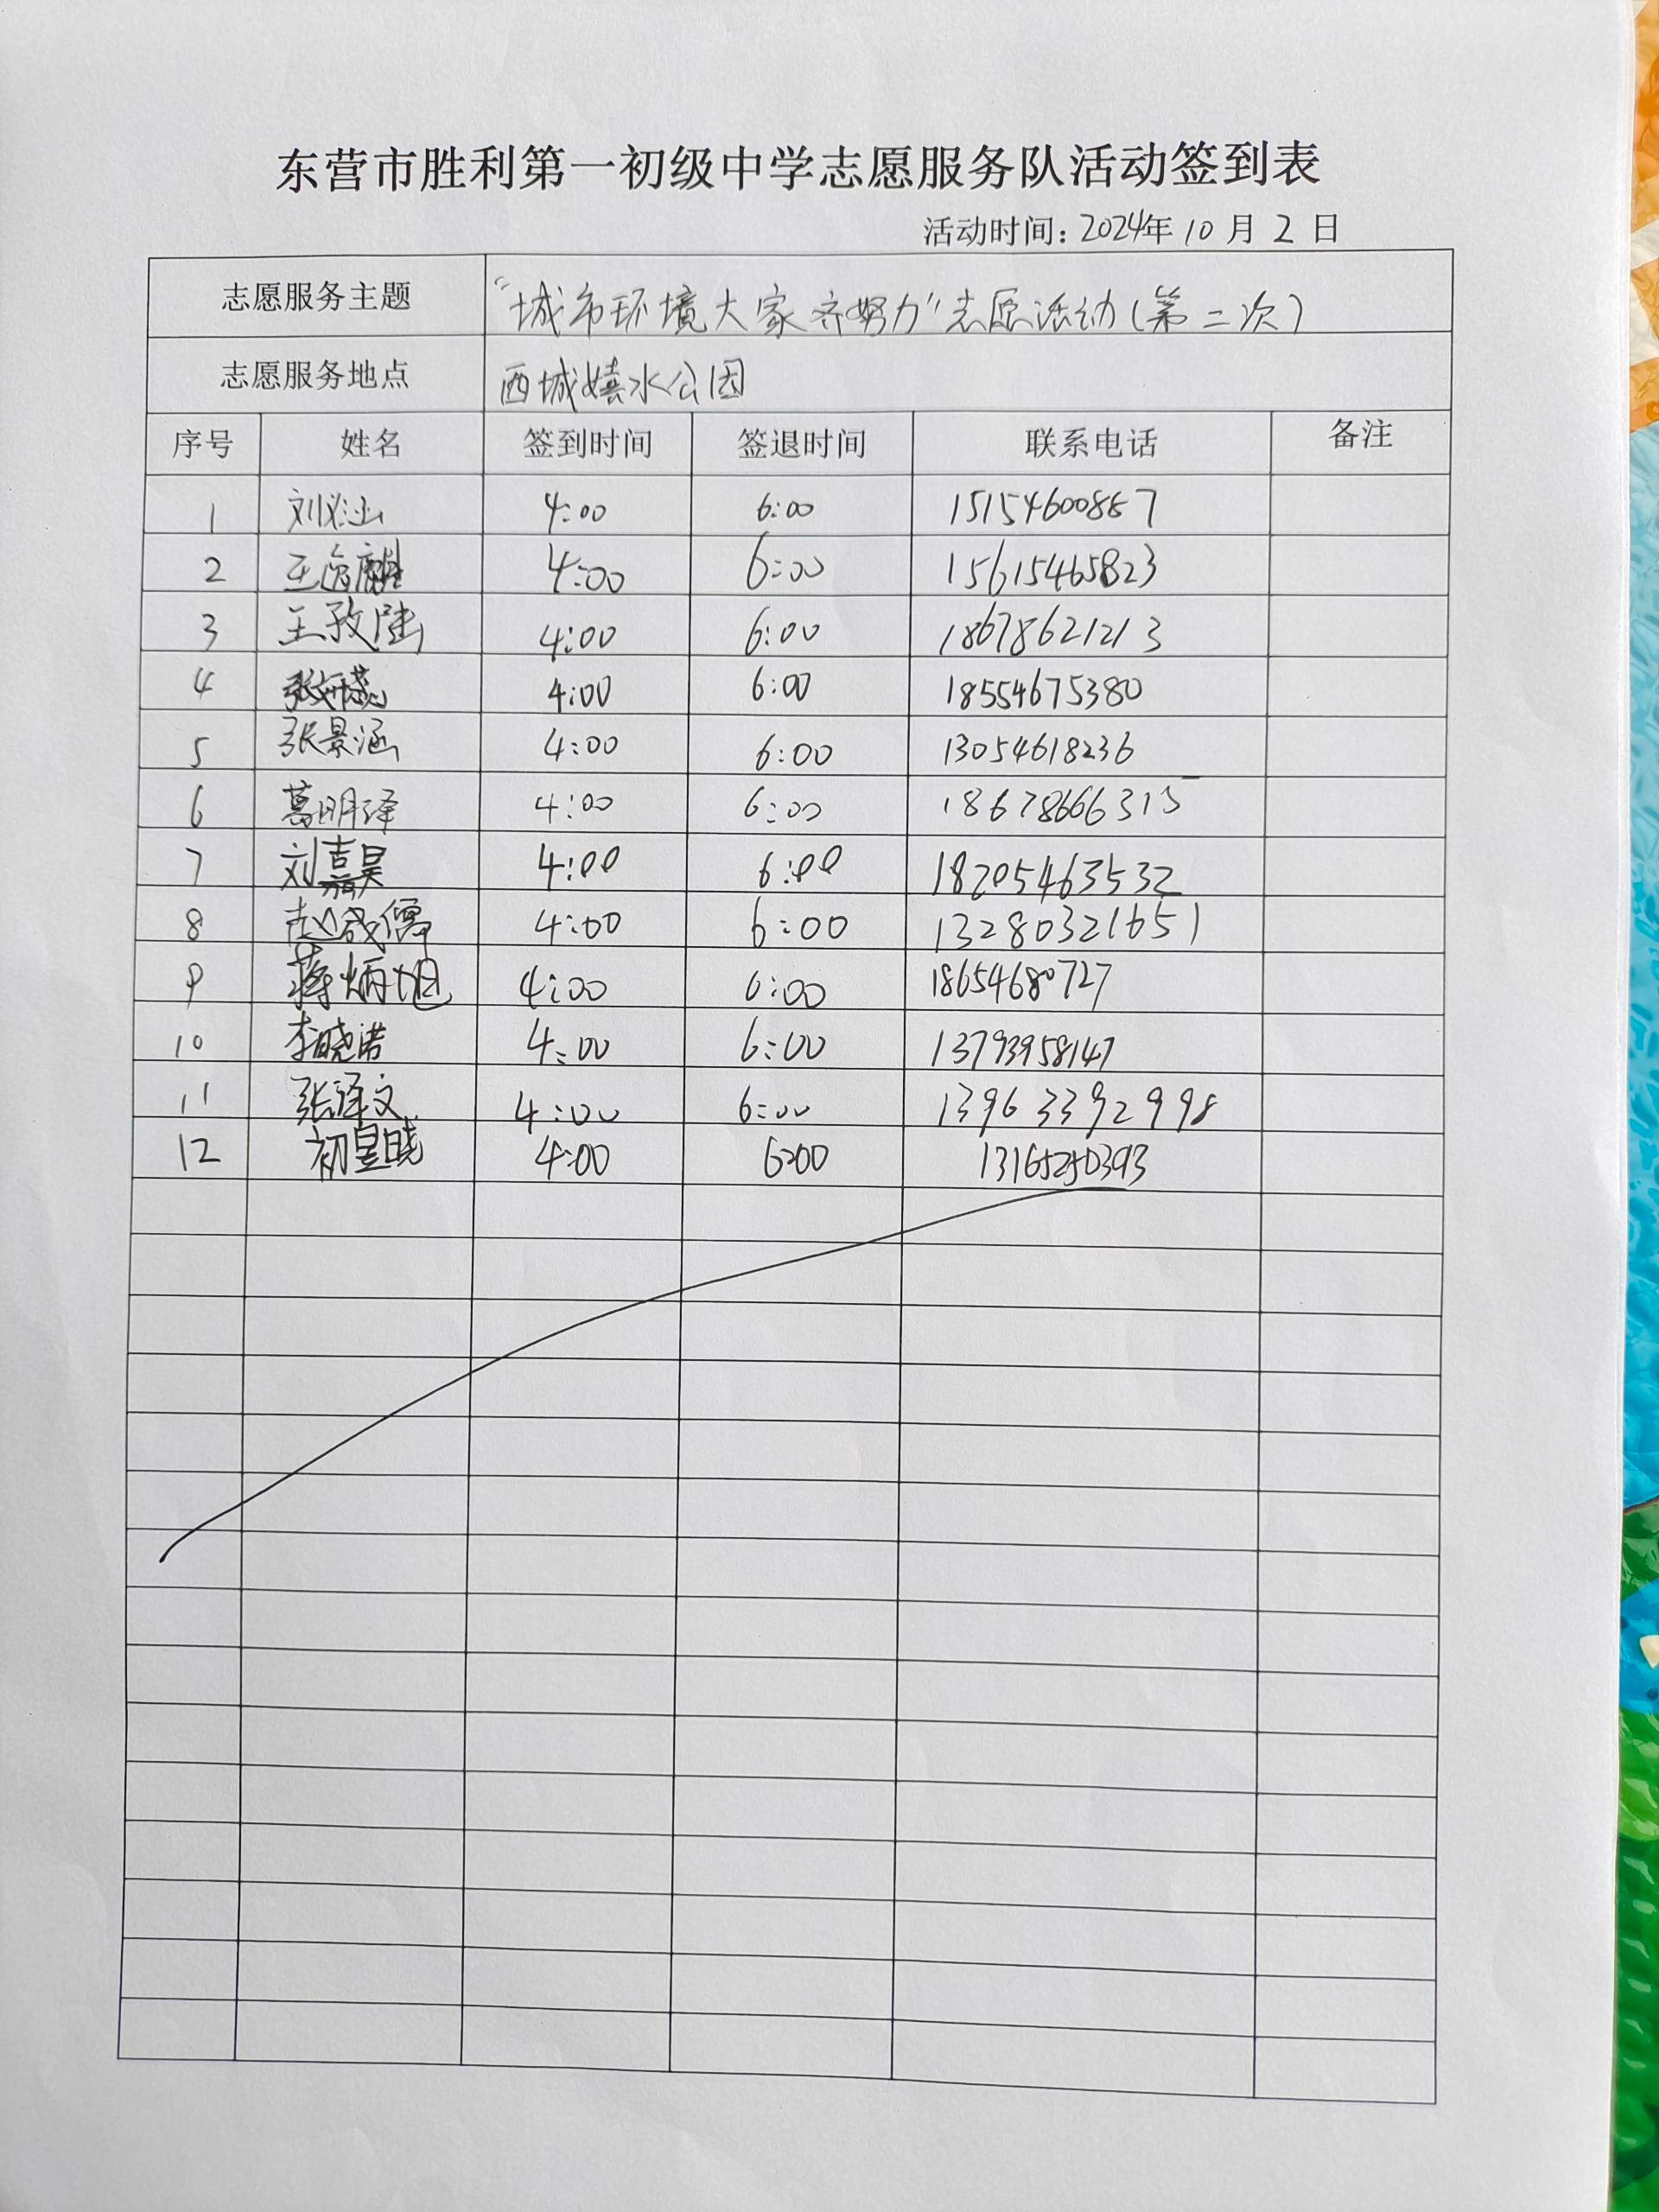 东营市胜利第一初级中学志愿服务队活动签到表
活动时间：2024年 10 月 2 日
志愿服务主题 “城市环境大家齐努力”志愿活动（第二次）
志愿服务地点 西城嬉水公园
序号 姓名 签到时间 签退时间 联系电话 备注
1 4:00 6:00 15154600887
2 4:00 6:00 15615465823
3 4:00 6:00 18678621213
4 4:00 6:00 18554675380
5 张景涵 4:00 6:00 13054618236
6 葛明泽 4:00 6:00 18678666315
7 刘嘉昊 4:00 6:00 18205463532
8 赵成儒 4:00 6:00 13280321651
9 蒋炳旭 4:00 6:00 18654680727
10 李晓诺 4:00 6:00 13793958147
11 张泽文 4:00 6:00 13963392998
12 初昱晓 4:00 6:00 13165250393